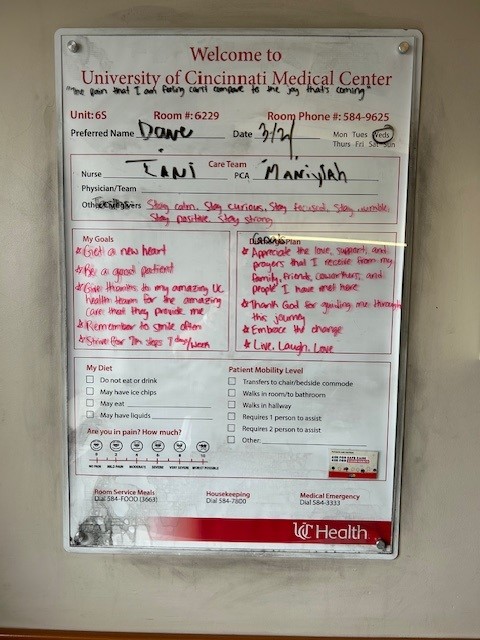 Welcome to
University of Cincinnati Medical Center
"The pain that I am feeling can't compare to the joy that's coming"
Unit: 6S Room #: 6229 Room Phone #: 584-9625
Preferred Name Dave Date 3/2/ Mon Tues Weds
Thurs Fri Sat Sun
Care Team
Nurse TANI PCA MANIYIAH
Physician/Team
Other Caregivers Stay calm, Stay curious, Stay focused, Stay humble,
Stay positive, Stay strong
My Goals
* Get a new heart
* Be a good patient
* Give thanks to my amazing UC
health team for the amazing
care that they provide me
* Remember to smile often
* Strive for 7k steps 7 day/week
Plan
* Appreciate the love, support, and
prayers that I receive from my
family, friends, coworkers, and
people I have met here
* Thank God for guiding me through
this journey
* Embrace the change
* Live, Laugh, Love
My Diet
Do not eat or drink
May have ice chips
May eat
May have liquids
Patient Mobility Level
Transfers to chair/bedside commode
Walks in room/to bathroom
Walks in hallway
Requires 1 person to assist
Requires 2 person to assist
Other:
Are you in pain? How much?
0 2 4 6 8 10
NO PAIN MILD PAIN MODERATE SEVERE VERY SEVERE WORST POSSIBLE
Room Service Meals
Dial 584-FOOD (3663)
Housekeeping
Dial 584-7800
Medical Emergency
Dial 584-3333
UC Health